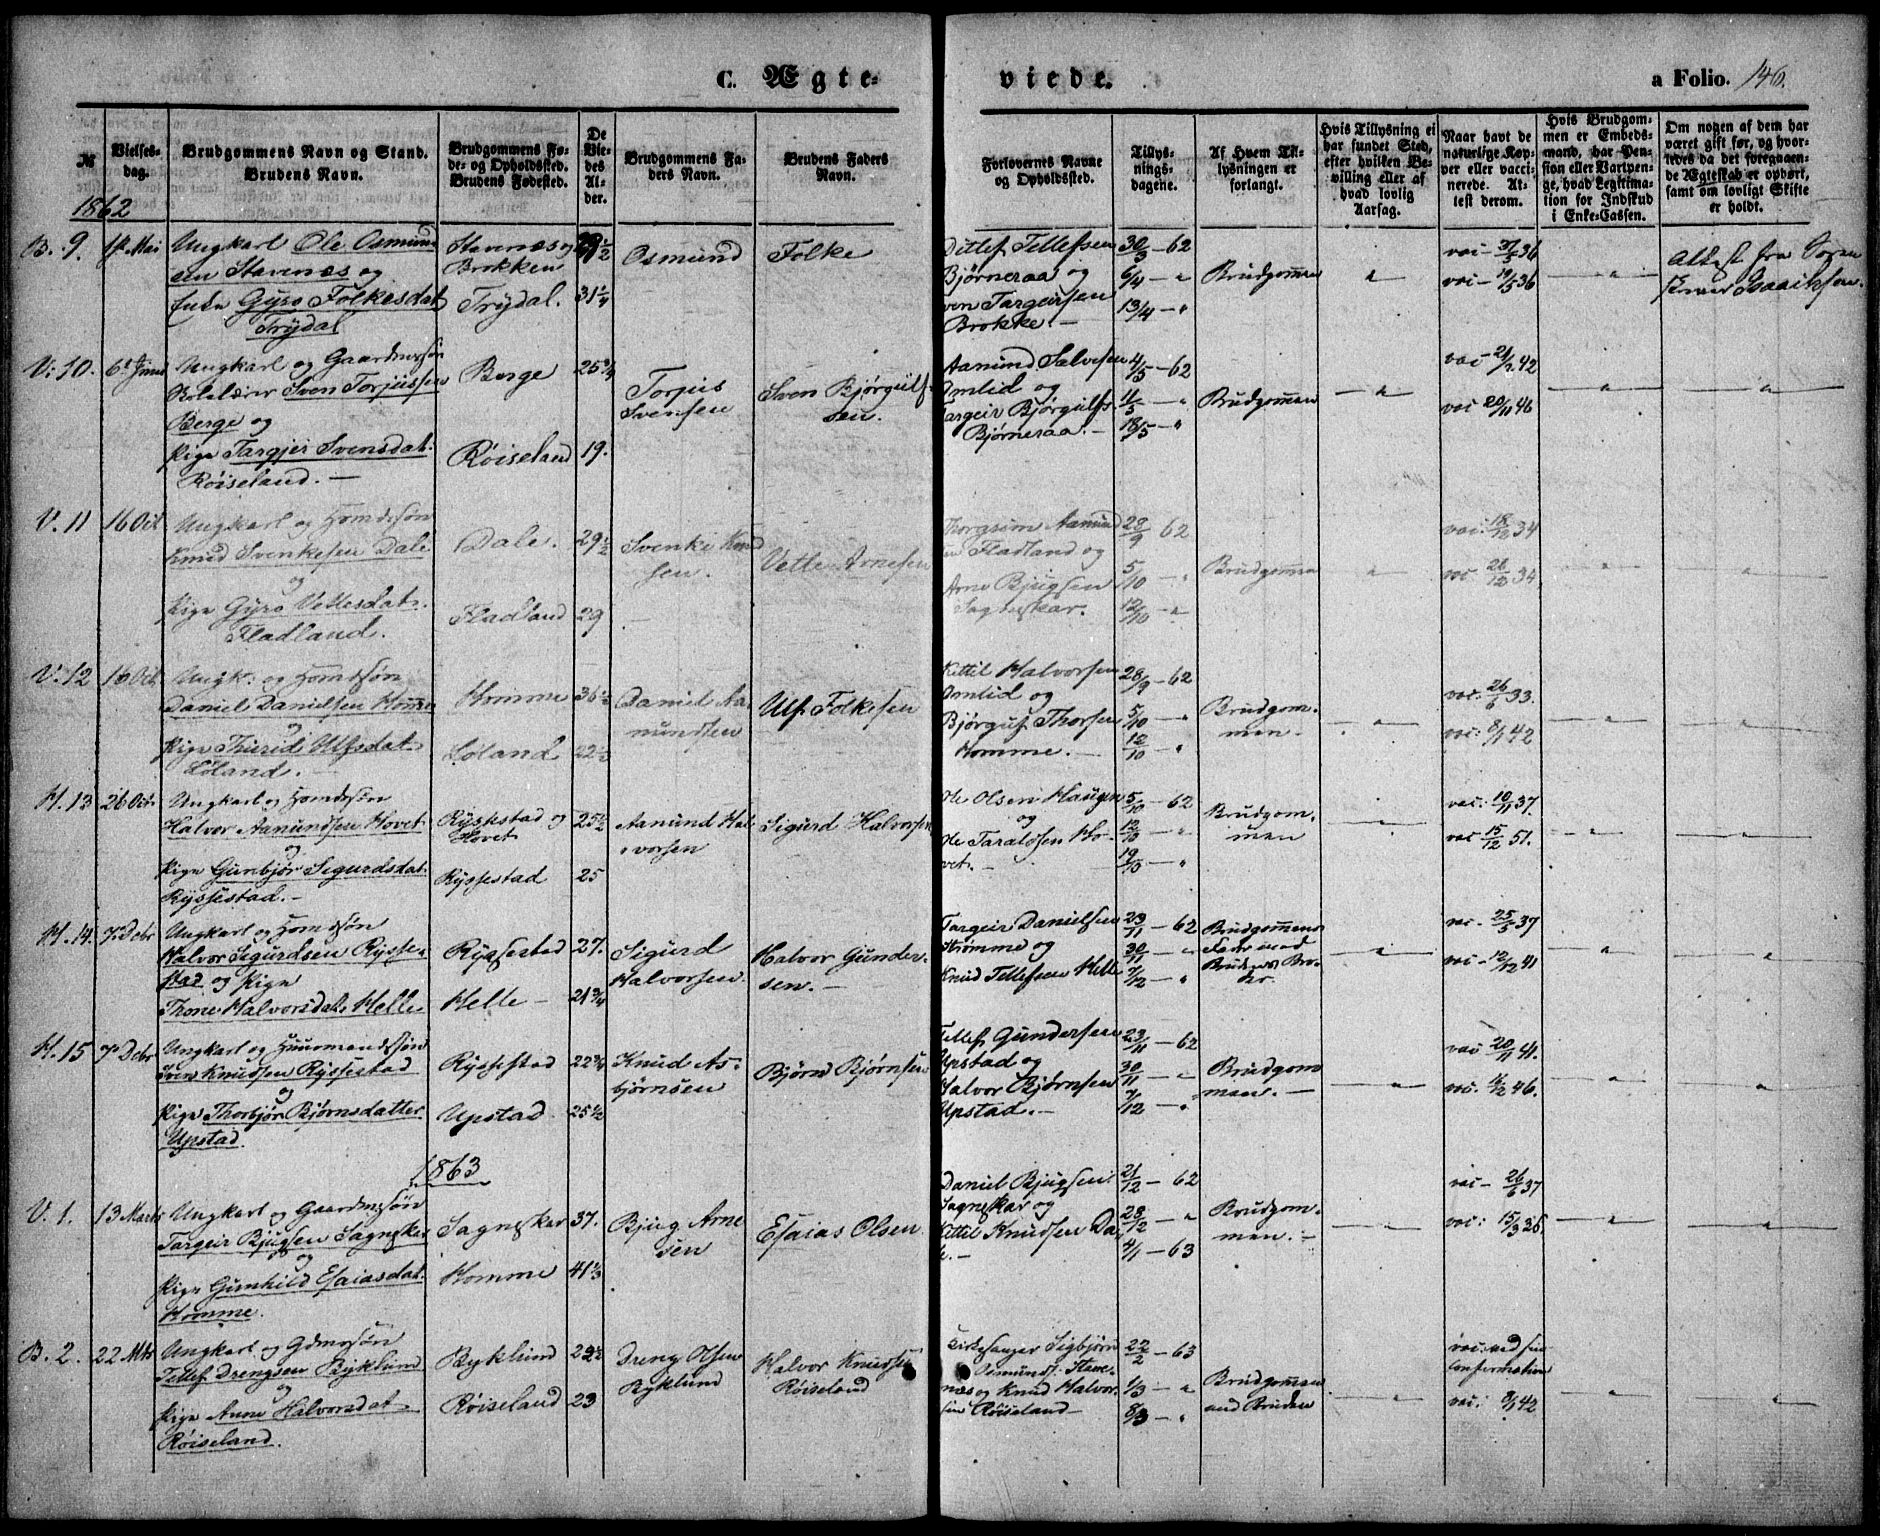 C. Ægte-
viede.
a Folio. 146.
№
Vielses-
dag.
Brudgommens Navn og Stand.
Brudens Navn.
Brudgommens Fø-
de- og Opholdssted.
Brudens Fødested.
De
Vie-
des
Al-
der.
Brudgommens Fa-
ders Navn.
Brudens Faders
Navn.
Forlovernes Navne
og Opholdssted.
Tillys-
nings-
dagene.
Af Hvem Til-
lysningen er
forlangt.
Hvis Tillysning ei
har fundet Sted,
efter hvilken Be-
villing eller af
hvad lovlig
Aarsag.
Naar havt de
naturlige Kop-
per eller vacci-
nerede. At-
test derom.
Hvis Brudgom-
men er Embeds-
mand, har Pen-
sion eller Vartpen-
ge, hvad Legitima-
tion for Indskud
i Enke-Cassen.
Om nogen af dem har
været gift før, og hvor-
ledes da det foregaaen-
de Ægteskab er ophørt,
samt om lovligt Skifte
er holdt.
1862
B. 9. Mai
Ungkarl Ole Osmund
sen Stavenæs og
Enke Gyro Folkesdat
Trydal
Stavenæs og
Brokken
Trydal. 31 1/4
Osmund
Folke
Ditlef Tellefsen
Bjørneraa og
Targeirsen
Brokke.
30/3 - 62
6/4 - "
13/4 - "
Brudgommen
"
vac - /5 36
vac - 19/5 36
"
Attest fra Soren
skriver Isaachsen.
V. 10. 6te Juni
Ungkarl og Gaardmssøn
Sven Torjussen
Berge og
Pige Targjer Svensdat.
Røiseland.
Berge 25 3/4
Røiseland 19.
Torjus
Svensen
Sven Bjørgulf-
sen.
Aanund Salvesen
Omlid og
Targeir Bjørgulfs
Bjørneraa.
4/5 - 62
11/5 - "
18/5 - "
Brudgommen
"
vac - 21/2 42
vac 20/11 46
"
"
V. 11 16 Oct
Ungkarl og Hmdssøn
Knud Svenkesen Dale
og
Pige Gyro Vetlesdat.
Fladland.
Dale. 29 1/2
Fladland 29
Svenke Knud
sen.
Vetle Arnesen
Thorgrim Aanund
sen Fladland og
Arne Bjugsen
Sagneskar.
28/9 62
5/10 - "
12/10 - "
Brudgommen
"
vac: 18/12 34
vac 21/12 34
"
"
V. 12 16 Oct
Ungk. og Hmdssøn
Daniel Danielsen Homme
og
Pige Thurid Ulfsdat.
Løland.
Homme 36 1/2
Løland 22 1/2
Daniel Aa-
nundsen
Ulf Folkesen
Kittil Halvorsen
Omlid og
Bjørgulf Thorsen
Homme.
28/9 - 62
5/10 - "
12/10 - "
Brudgom-
men.
"
vac: 26/6 33.
vac: 8/11 42
"
"
H. 13 26 Oct
Ungkarl og Hmdssøn
Halvor Aanundsen Hovet
og
Pige Gunbjør Sigurdsdat.
Ryssestad.
Rysstad og
Hovet 25 1/2
Ryssestad 25
Aanund Hal-
vorsen
Sigurd Halvorsen
Ole Olsen Haugen
og
Ole Taraldsen Ho-
vet.
5/10 - 62
12/10 - "
19/10 - "
Brudgom-
men
"
vac: 10/11 37.
vac 15/12 51.
"
"
H. 14. 7de Decbr
Ungkarl og Hmdssøn
Halvor Sigurdsen Rysse-
stad og Pige
Thone Halvorsdat. Helle
Ryssestad 27.
Helle 21 3/4
Sigurd
Halvorsen.
Halvor Gunder-
sen.
Targeir Danielsen
Strømme og
Knud Tellefsen Helle
23/11 - 62
30/11 - "
7/12 - "
Brudgommens
Fader med
Brudens Bro-
der.
"
vac - 25/5 37
vac - 12/12 41
"
"
H. 15 7de Decbr
Ungkarl og Huusmandssøn
Sven Knudsen Ryssestad
og
Pige Thorbjør Bjørnsdatter
Upstad
Ryssestad 22 3/4
Upstad 25 1/2
Knud As-
bjørnsen
Bjørn Bjørnsen
Tellef Gundersen
Upstad og
Halvor Bjørnsen
Upstad.
23/11 - 62
30/11 - "
7/12 - "
Brudgom-
men.
"
vac 20/11 41.
vac. /12 46.
"
"
1863
V. 1. 13 Marts
Ungkarl og Gaardmssøn
Targeir Bjugsen Sagneskar
og
Pige Gunhild Esaiasdat.
Homme.
Sagneskar 37.
Homme 41 1/3
Bjug Arne
sen
Esaias Olsen
Daniel Bjugsen
Sagneskar og
Kittil Knudsen Da-
le.
21/12 - 62
28/12 - "
4/1 - 63
Brudgom-
men.
"
vac - 26/6 37
vac: 15/3 36.
"
"
B. 2. 22 Mts
Ungkarl og Gdmssøn
Tellef Drengsen Byklund
og
Pige Anne Halvorsdat.
Røiseland.
Byklund
Røiseland 23
Dreng Olsen
Byklund
Halvor Knudsen
Røiseland
Kirkesanger Sigbjørn
Osmunds. Stave-
næs og Knud Halvor-
sen Røiseland
22/2 - 63
1/3 - "
8/3 - "
Brudgommen
und Bruden
"
vac: ved sin
Confirmation
vac: 9/1 42
"
"